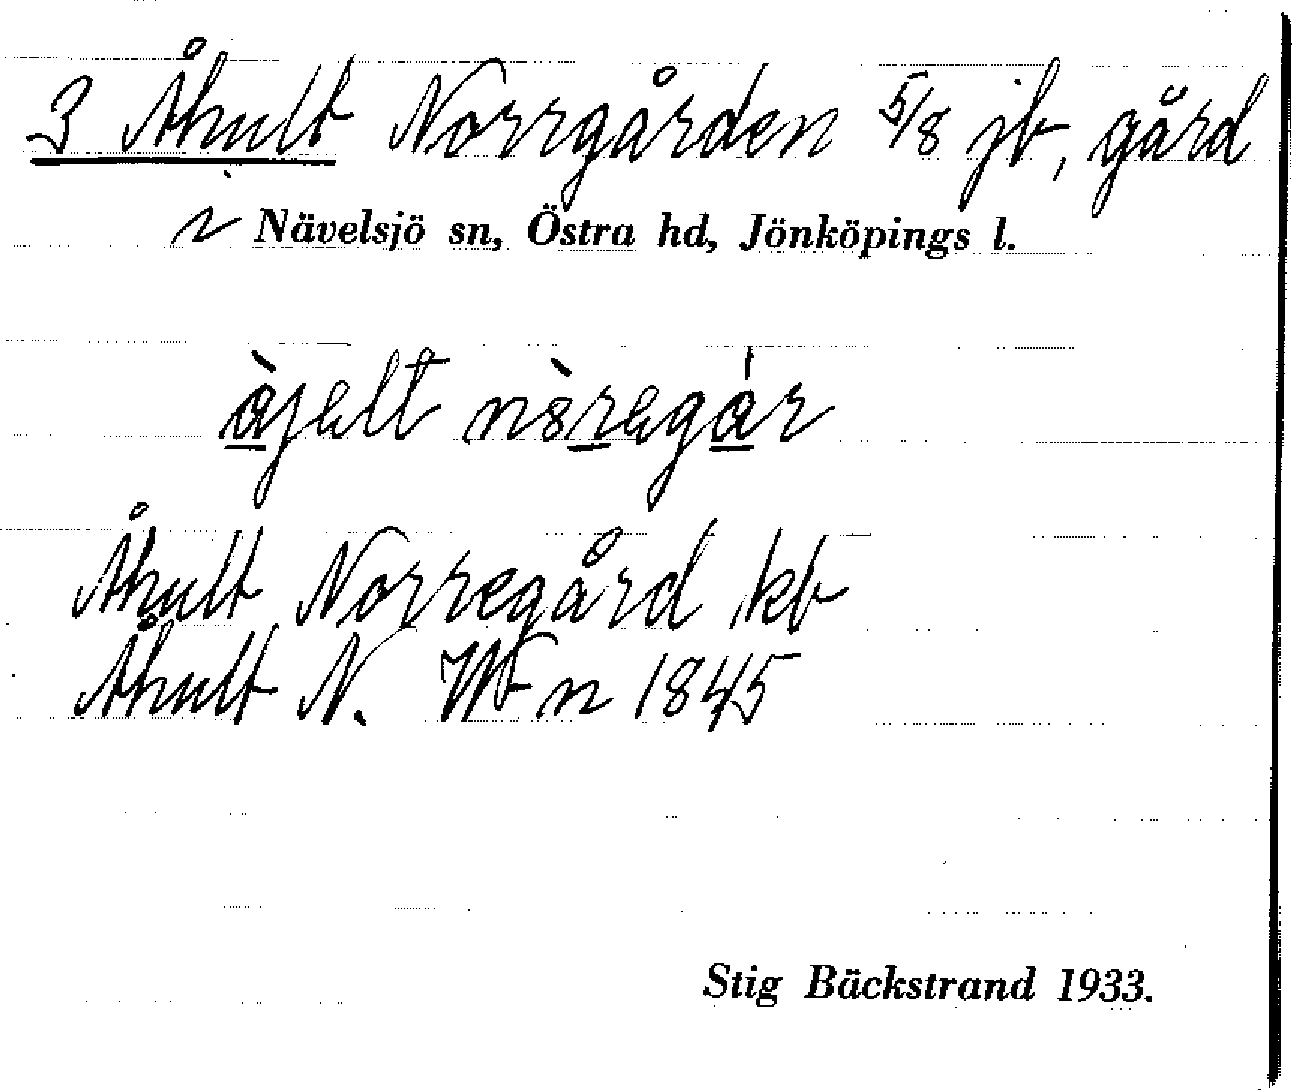 3 Åhult Norrgården 5/8 jb, gård
i Nävelsjö sn, Östra hd, Jönköpings l.
Åhult Norregård kb
Åhult N. W-n 1845
Stig Bäckstrand 1933.